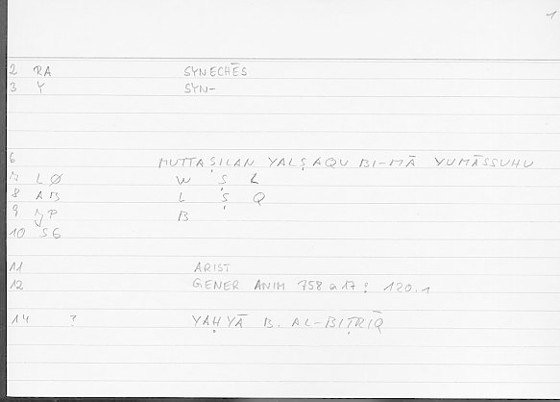 1
2 RA SYNECHĒS
3 Y SYN-
6 MUTTAṢILAN YALṢAQU BI-MĀ YUMĀSSUHU
7 LØ W Ṣ L
8 AB L Ṣ Q
9 NP B
10 SG
11 ARIST
12 GENER ANIM 758 a 17 ? 120.1
14 ? YAḤYĀ B. AL-BIṬRĪQ